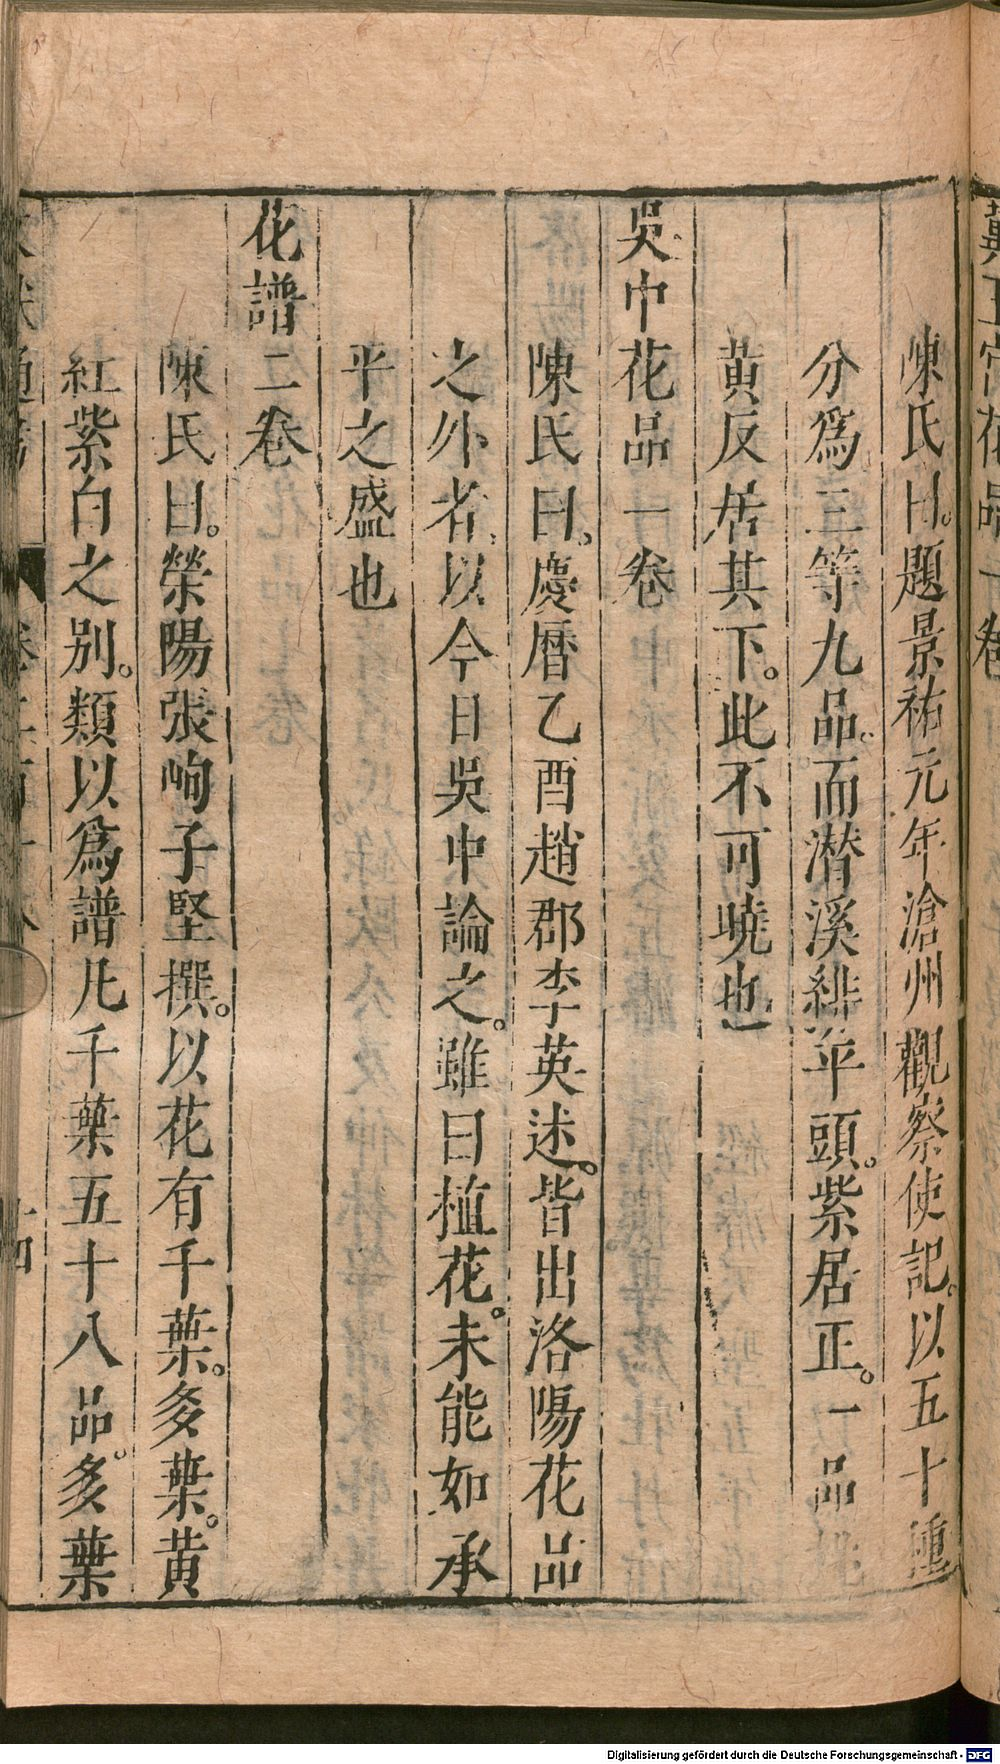 冀王宮花品一卷
陳氏曰。題景祐元年滄州觀察使記。以五十種
分爲三等九品。而潜溪緋平頭。紫居正。一品姚
黃反居其下。此不可曉也
吳中花品一卷
陳氏曰。慶曆乙酉趙郡李英述。皆出洛陽花品
之外者。以今日吳中論之。雖曰植花。未能如承
平之盛也
花譜二卷
陳氏曰。滎陽張峋子堅撰。以花有千葉。多葉。黃
紅紫白之別。類以爲譜凡千葉五十八品。多葉
Digitalisierung gefördert durch die Deutsche Forschungsgemeinschaft - DFG